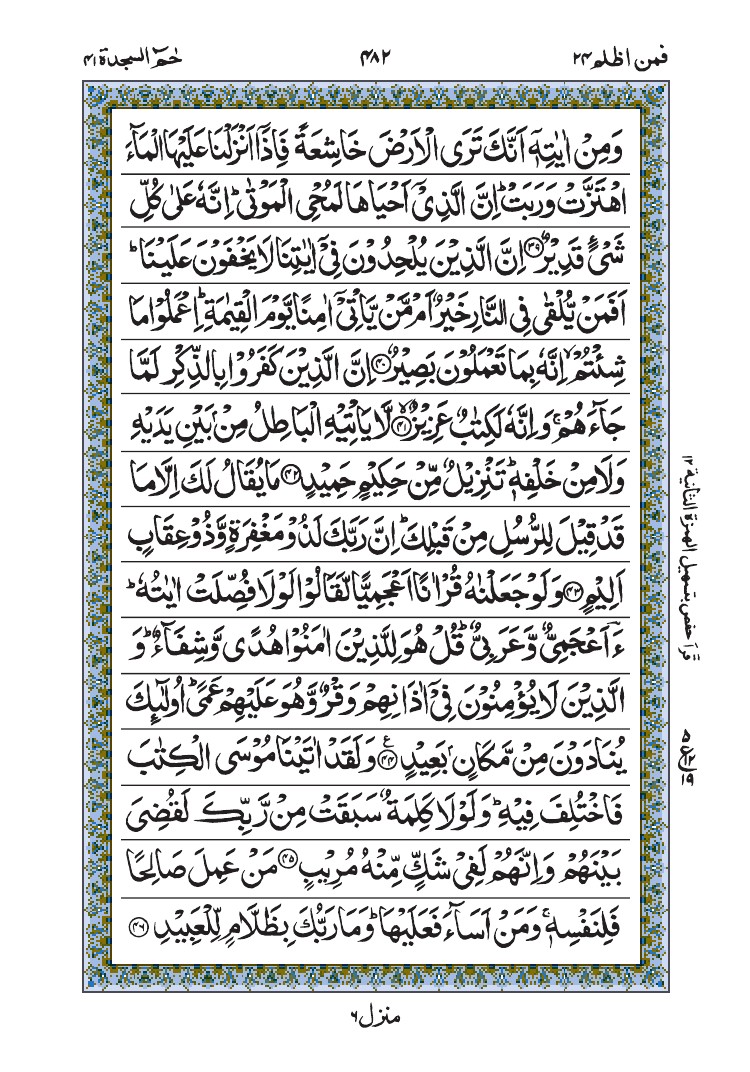 فمن اظلم ۲۴
۴۸۲
حٰمٓ السجدة ۴۱
وَمِنْ اٰيٰتِهٖۤ اَنَّكَ تَرَى الْاَرْضَ خَاشِعَةً فَاِذَاۤ اَنْزَلْنَا عَلَيْهَا الْمَآءَ
اهْتَزَّتْ وَرَبَتْ ؕ اِنَّ الَّذِيْۤ اَحْيَاهَا لَمُحْيِ الْمَوْتٰى ؕ اِنَّهٗ عَلٰى كُلِّ
شَيْءٍ قَدِيْرٌ ۳۹ اِنَّ الَّذِيْنَ يُلْحِدُوْنَ فِيْۤ اٰيٰتِنَا لَا يَخْفَوْنَ عَلَيْنَا ؕ
اَفَمَنْ يُّلْقٰى فِي النَّارِ خَيْرٌ اَمْ مَّنْ يَّاْتِيْۤ اٰمِنًا يَّوْمَ الْقِيٰمَةِ ؕ اِعْمَلُوْا مَا
شِئْتُمْ ۙ اِنَّهٗ بِمَا تَعْمَلُوْنَ بَصِيْرٌ ۴۰ اِنَّ الَّذِيْنَ كَفَرُوْا بِالذِّكْرِ لَمَّا
جَآءَهُمْ ۚ وَاِنَّهٗ لَكِتٰبٌ عَزِيْزٌ ۙ ۴۱ لَّا يَاْتِيْهِ الْبَاطِلُ مِنْۢ بَيْنِ يَدَيْهِ
وَلَا مِنْ خَلْفِهٖ ؕ تَنْزِيْلٌ مِّنْ حَكِيْمٍ حَمِيْدٍ ۴۲ مَا يُقَالُ لَكَ اِلَّا مَا
قَدْ قِيْلَ لِلرُّسُلِ مِنْ قَبْلِكَ ؕ اِنَّ رَبَّكَ لَذُوْ مَغْفِرَةٍ وَّذُوْ عِقَابٍ
اَلِيْمٍ ۴۳ وَلَوْ جَعَلْنٰهُ قُرْاٰنًا اَعْجَمِيًّا لَّقَالُوْا لَوْلَا فُصِّلَتْ اٰيٰتُهٗ ؕ
ءَاَعْجَمِيٌّ وَّعَرَبِيٌّ ؕ قُلْ هُوَ لِلَّذِيْنَ اٰمَنُوْا هُدًى وَّشِفَآءٌ ؕ وَ
الَّذِيْنَ لَا يُؤْمِنُوْنَ فِيْۤ اٰذَانِهِمْ وَقْرٌ وَّهُوَ عَلَيْهِمْ عَمًى ؕ اُولٰٓئِكَ
يُنَادَوْنَ مِنْ مَّكَانٍۭ بَعِيْدٍ ۴۴ ع وَلَقَدْ اٰتَيْنَا مُوْسَى الْكِتٰبَ
فَاخْتُلِفَ فِيْهِ ؕ وَلَوْلَا كَلِمَةٌ سَبَقَتْ مِنْ رَّبِّكَ لَقُضِيَ
بَيْنَهُمْ ؕ وَاِنَّهُمْ لَفِيْ شَكٍّ مِّنْهُ مُرِيْبٍ ۴۵ مَنْ عَمِلَ صَالِحًا
فَلِنَفْسِهٖ ۚ وَمَنْ اَسَآءَ فَعَلَيْهَا ؕ وَمَا رَبُّكَ بِظَلَّامٍ لِّلْعَبِيْدِ ۴۶
قرأ حفص بتسهيل الهمزة الثانية ۱۲
منزل ۶